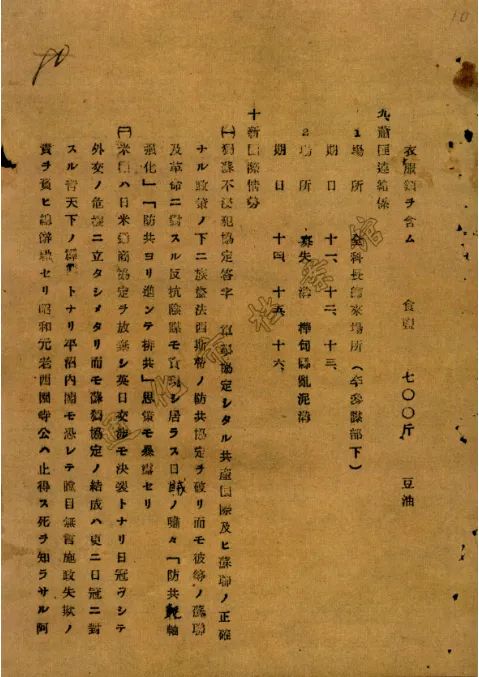 10
80
衣服類ヲ含ム　食鹽　七〇〇斤　豆油
九、蕭匪連絡係
1場所　金科長歸來場所（李參謀部下）
期日　十一、十二、十三、
2場所　樺甸縣亂泥溝
期日　十四、十五、十六、
十、新國際情勢
㈠獨蘇不浸犯協定簽字　協定シタル共產國際及ヒ蘇聯ノ正確
ナル政策ノ下ニ法西斯ノ防共協定ヲ破リ而モ彼等ノ蘇聯
及革命ニ對スル反抗陰謀モ實現シ居ラス日ノ嘯々「防共軸
强化」「防共ヨリ進ンテ排共」愚策モ暴露セリ
㈡米國ハ日米通商協定ヲ放棄シ英日交渉モ決裂トナリ日冠ヲシテ
外交ノ危機ニ立タシメタリ而モ蘇獨協定ノ結成ハ更ニ日冠ニ對
スル靑天下ノ トナリ平沼內閣モ恐レテ瞠目無言施政失敗ノ
責ヲ負ヒ總辭職セリ昭和元老西園寺公ハ止得ス死ヲ知ラサル阿